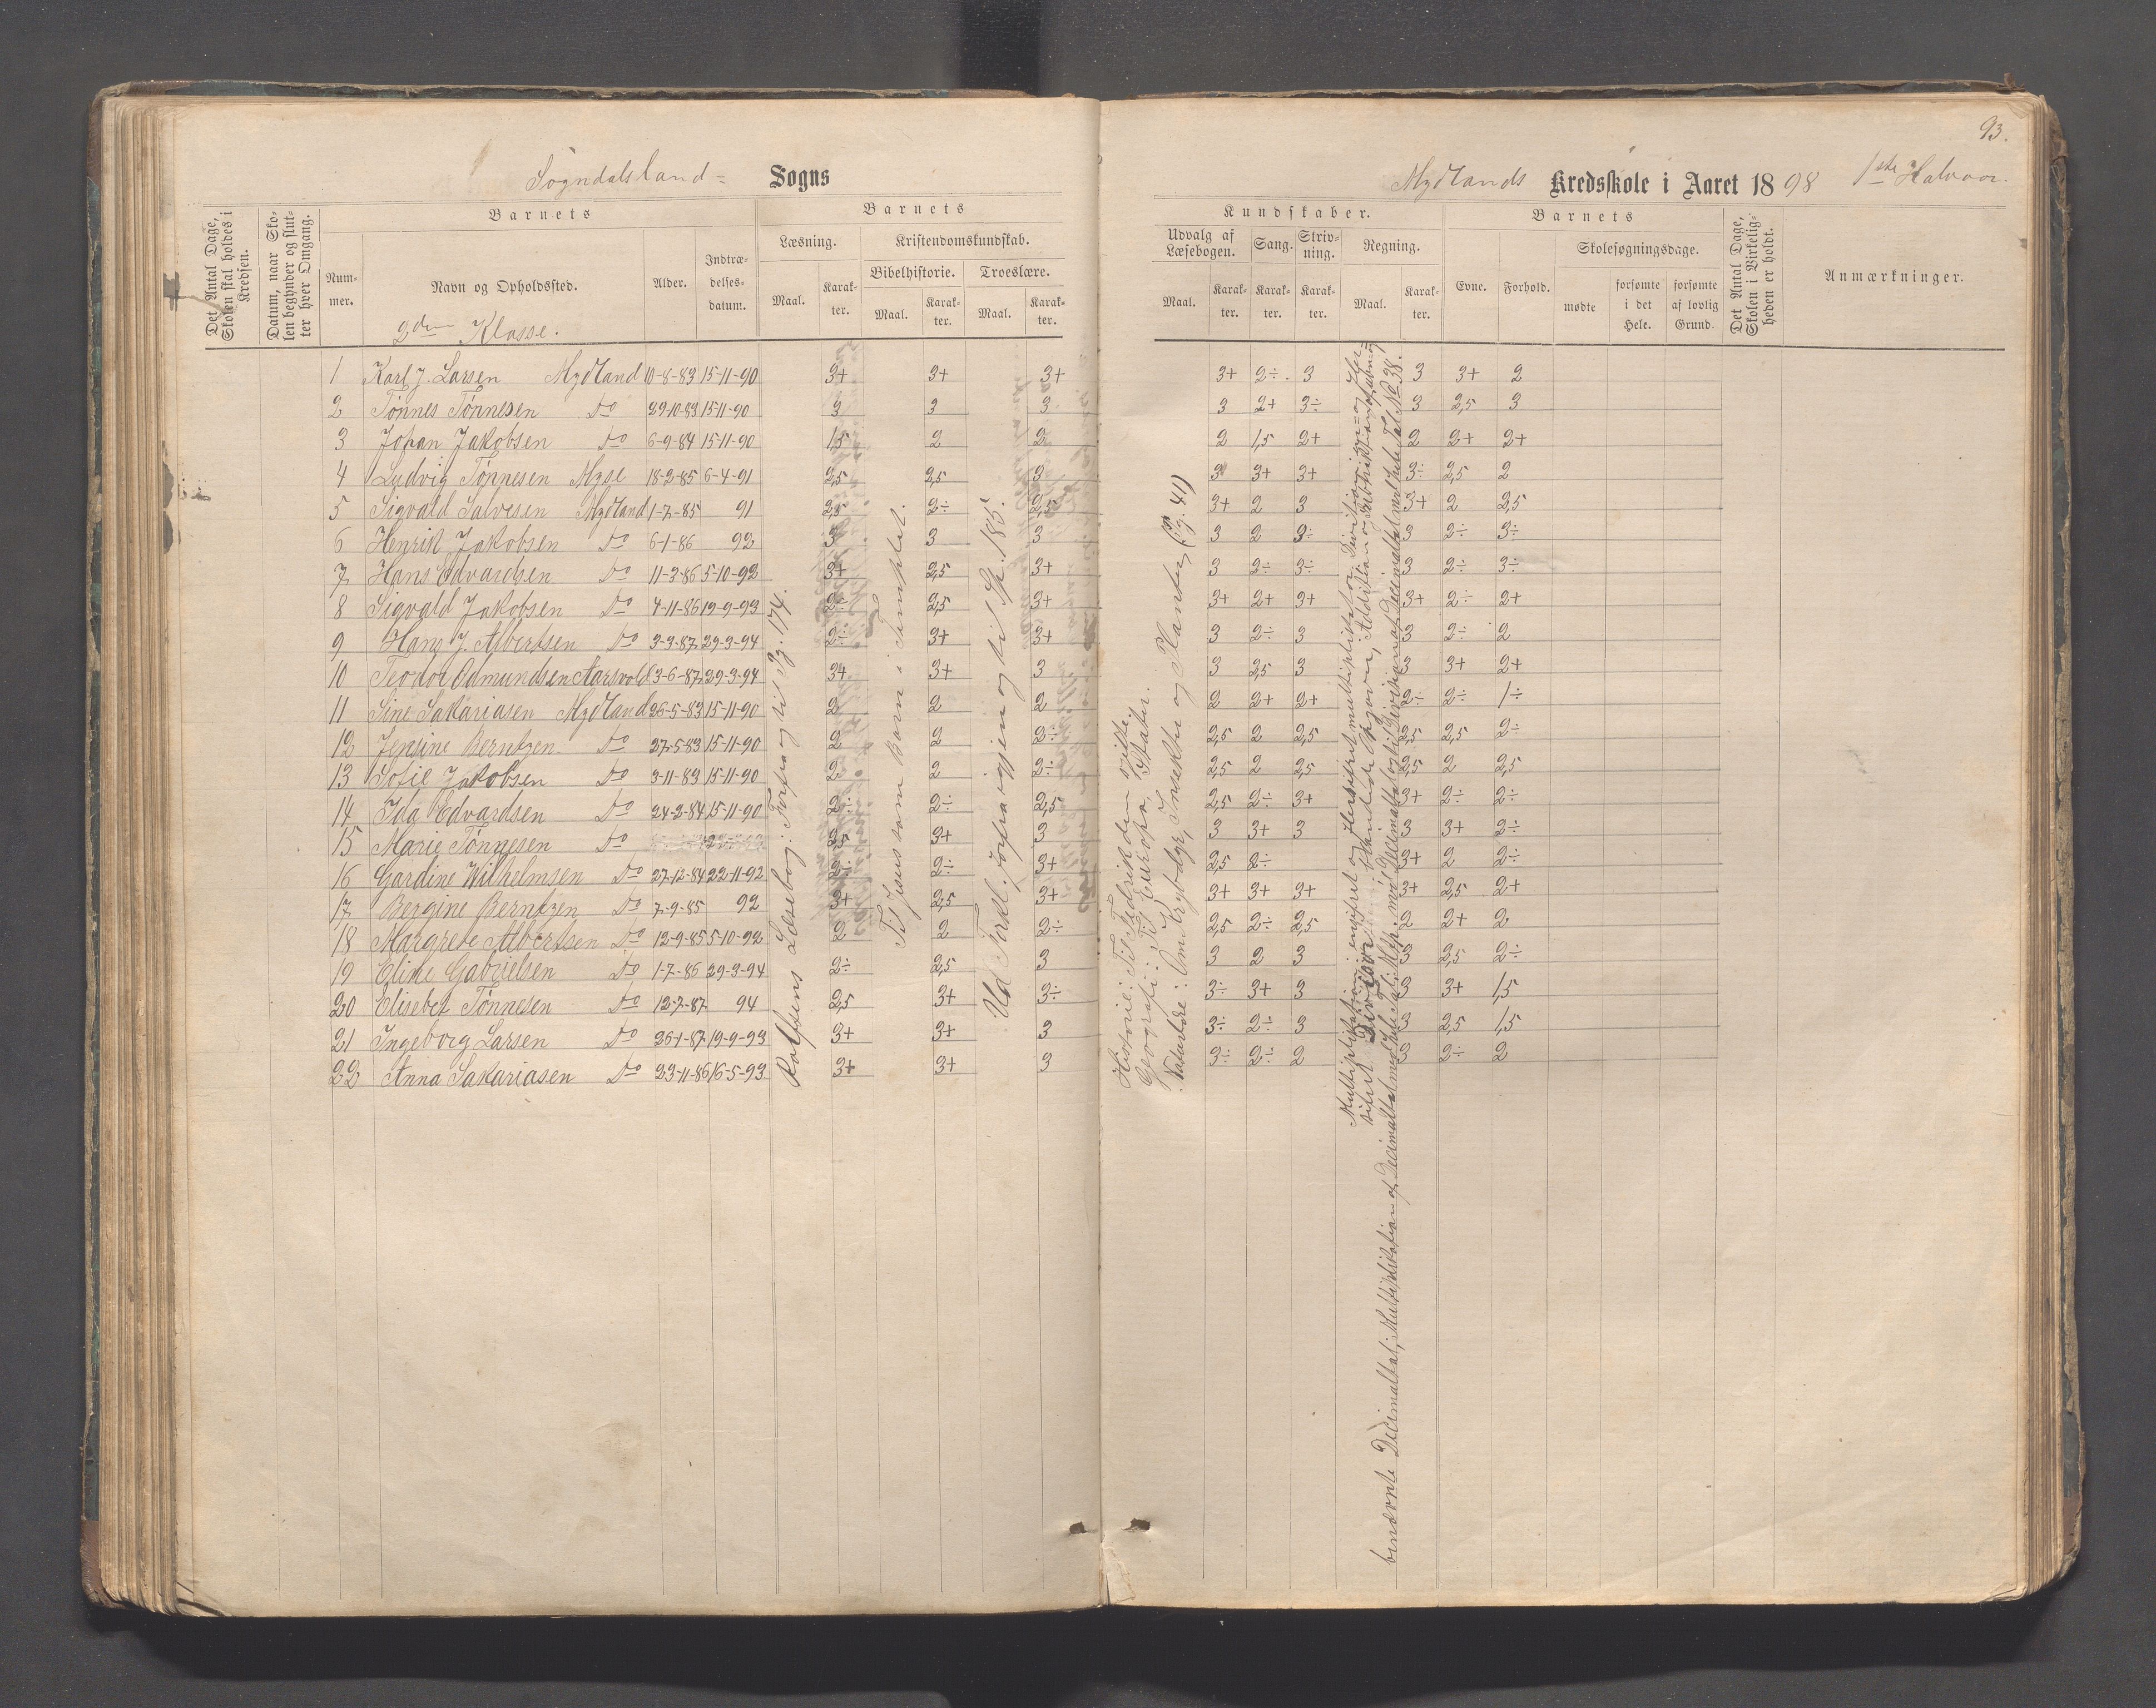 93.
Sogndalsland= Sogns
Mydlands Kredsskole i Aaret 1898 1ste Halvaar.
Det Antal Dage, Skolen skal holdes i Kredsen.
Datum, naar Skolen begynder og slutter hver Omgang.
Barnets
Nummer.
Navn og Opholdssted.
Alder.
Indtrædelses-datum.
Barnets
Læsning.
Maal.
Karakter.
Kristendomskundskab.
Bibelhistorie.
Maal.
Karakter.
Troeslære.
Maal.
Karakter.
Kundskaber.
Udvalg af Læsebogen.
Maal.
Karakter.
Sang.
Karakter.
Skrivning.
Karakter.
Regning.
Maal.
Karakter.
Barnets
Evne.
Forhold.
Skolesøgningsdage.
mødte
forsømte i det Hele.
forsømte af lovlig Grund.
Det Antal Dage, Skolen i Virkeligheden er holdt.
Anmærkninger.
2den Klasse.
1 Karl J. Larsen Mydland 10-8-83 15-11-90 3+ 3+ 3+ 3+ 2÷ 3 3 3+ 2
2 Tønnes Tønnesen Do 29-10-83 15-11-90 3 3 3 3 2+ 3÷ 3 2,5 3
3 Johan Jakobsen Do 6-9-84 15-11-90 1,5 2 2 2 1,5 2+ 2 2+ 2+
4 Ludvig Tønnesen Myse 18-2-85 6-4-91 2,5 2,5 3 3 3+ 3+ 3÷ 2,5 2
5 Sigvald Salvesen Mydland 1-7-85 91 2,5 2÷ 2,5 3+ 2 3 3+ 2 2,5
6 Henrik Jakobsen Do 6-1-86 92 3 3 3 3 2 3÷ 3 2÷ 3÷
7 Hans Edvardsen Do 11-3-86 5-10-92 3+ 2,5 3+ 3 2÷ 3÷ 3 2÷ 3÷
8 Sigvald Jakobsen Do 4-11-86 19-9-93 2÷ 2,5 3+ 3+ 2+ 3+ 3+ 2÷ 2+
9 Hans J. Albertsen Do 3-3-87 29-3-94 2÷ 3+ 3+ 3 2÷ 3 3 2÷ 2
10 Teodor Odmundsen Aarsvold 3-6-87 29-3-94 3+ 3+ 3 3 2,5 3 3 3+ 2+
11 Sine Sakariasen Mydland 26-5-83 15-11-90 2 2 2 2 2+ 2+ 2÷ 2÷ 1÷
12 Jensine Berntzen Do 27-5-83 15-11-90 2 2 2÷ 2,5 2 2,5 2,5 2,5 2÷
13 Sofie Jakobsen Do 3-11-83 15-11-90 2 2 2÷ 2,5 2 2,5 2,5 2 2,5
14 Ida Edvardsen Do 24-2-84 15-11-90 2÷ 2÷ 2,5 2,5 2÷ 3+ 3+ 2÷ 2÷
15 Marie Tønnesen Do 2,5 3+ 3 3 3+ 3 3 3+ 2÷
16 Gardine Wilhelmsen Do 27-12-84 22-11-92 2÷ 2÷ 3+ 2,5 2÷ 3+ 2 2÷
17 Bergine Berntzen Do 7-9-85 92 3+ 2,5 3+ 3+ 3+ 3+ 3+ 2,5 2+
18 Margrete Albertsen Do 12-9-85 5-10-92 2 2 2÷ 2,5 2÷ 2,5 2 2+ 2
19 Eline Gabrielsen Do 1-7-86 29-3-94 2÷ 2,5 3 3 2 3 3 2,5 2÷
20 Elisebet Tønnesen Do 12-7-87 94 2,5 3+ 3÷ 3÷ 3+ 3 3 3+ 1,5
21 Ingeborg Larsen Do 26-1-87 19-9-93 3+ 3+ 3 3÷ 2÷ 3 3 2,5 1,5
22 Anna Sakariasen Do 23-11-86 16-5-93 3+ 3+ 3 3÷ 2÷ 2 3 2÷ 2
Rolfsens Læsebog: Forfra og til Pg. 174.
Til Jesus som Barn i Templet.
Ud Forkl. forfra igjen og til Sp. 185.
Historie: Til Fredrik den
Geografi: Til Europa, Stater.
Naturlære: Om Krybdyr, Insekter og Planter, (Pg. 41)
Multiplikation: ensifret og flersifret multiplikator. Division:
sifret Divisor. Addition og Subtraktion af
benævnte Decimaltal, Multiplikation af Decimaltal med hele Tal No 38.